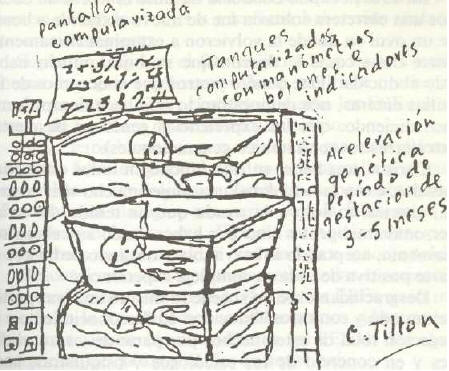 pantalla
computarizada
Tanques
computarizados,
con manómetros
botones e
indicadores
Aceleración
genética
periodo de
gestación de
3-5 meses
C. Tilton